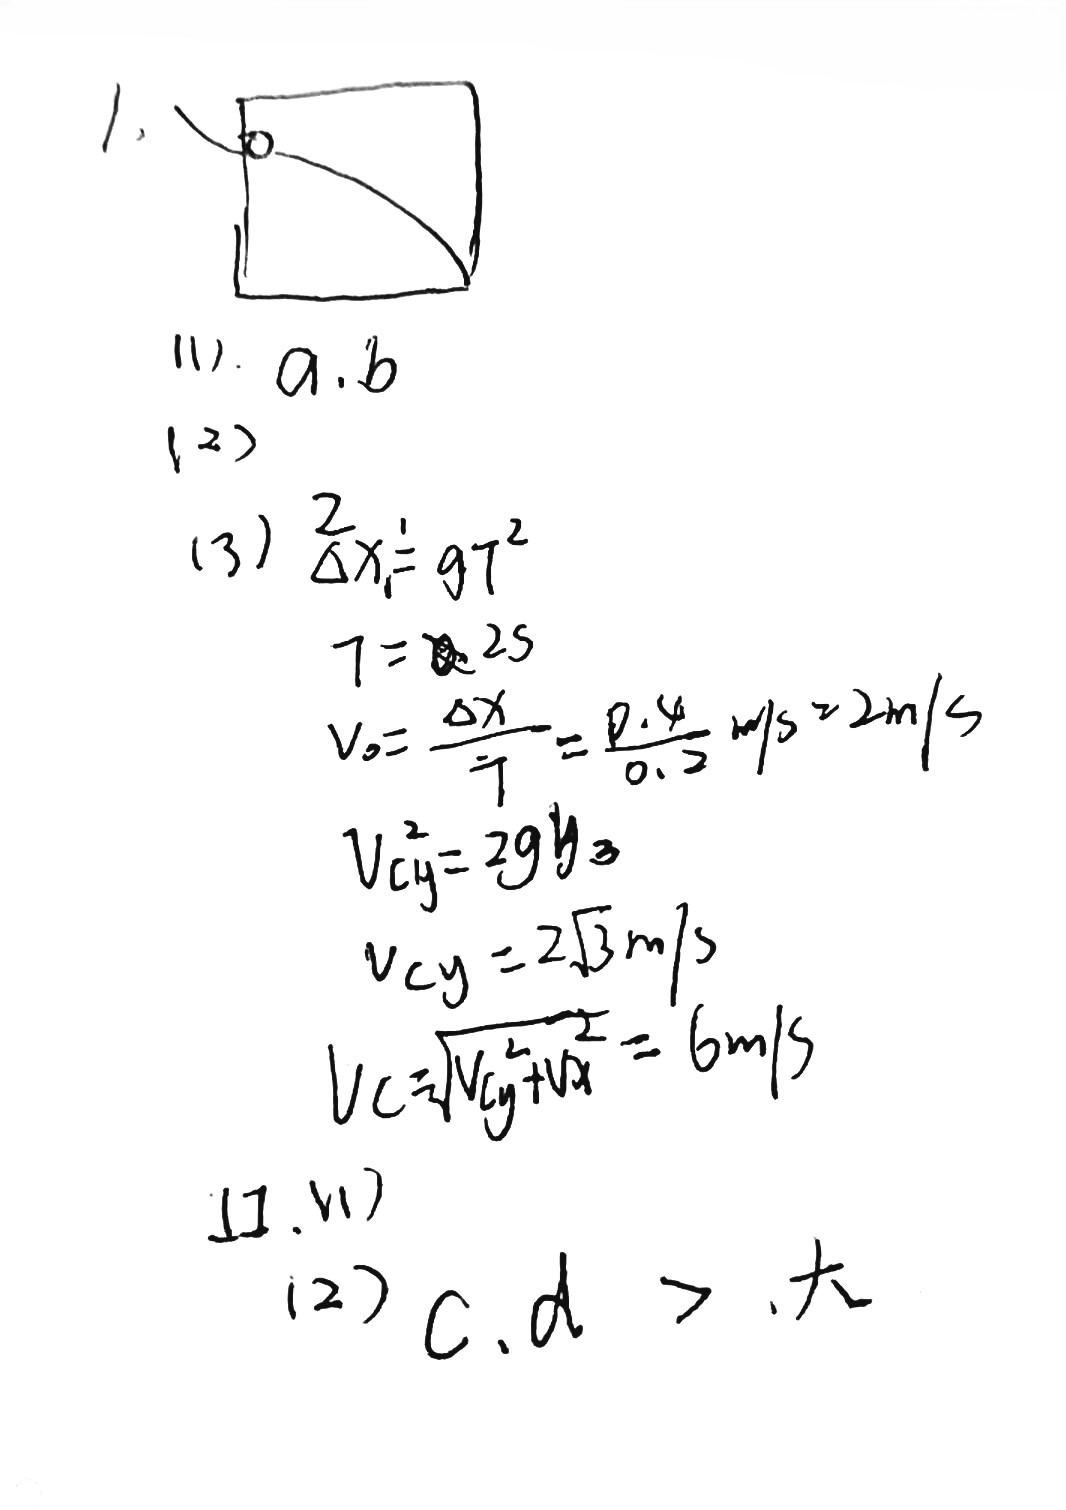 1.
(1). a.b
(2)
(3) 2
Δx = gT²
T = 2s
V₀ = Δx/T = 0.4/0.2 m/s = 2m/s
Vcy² = 2gy₃
Vcy = 2√3 m/s
Vc = √(Vcy²+Vx²) = 6m/s
II. (1)
(2) c.d > .大